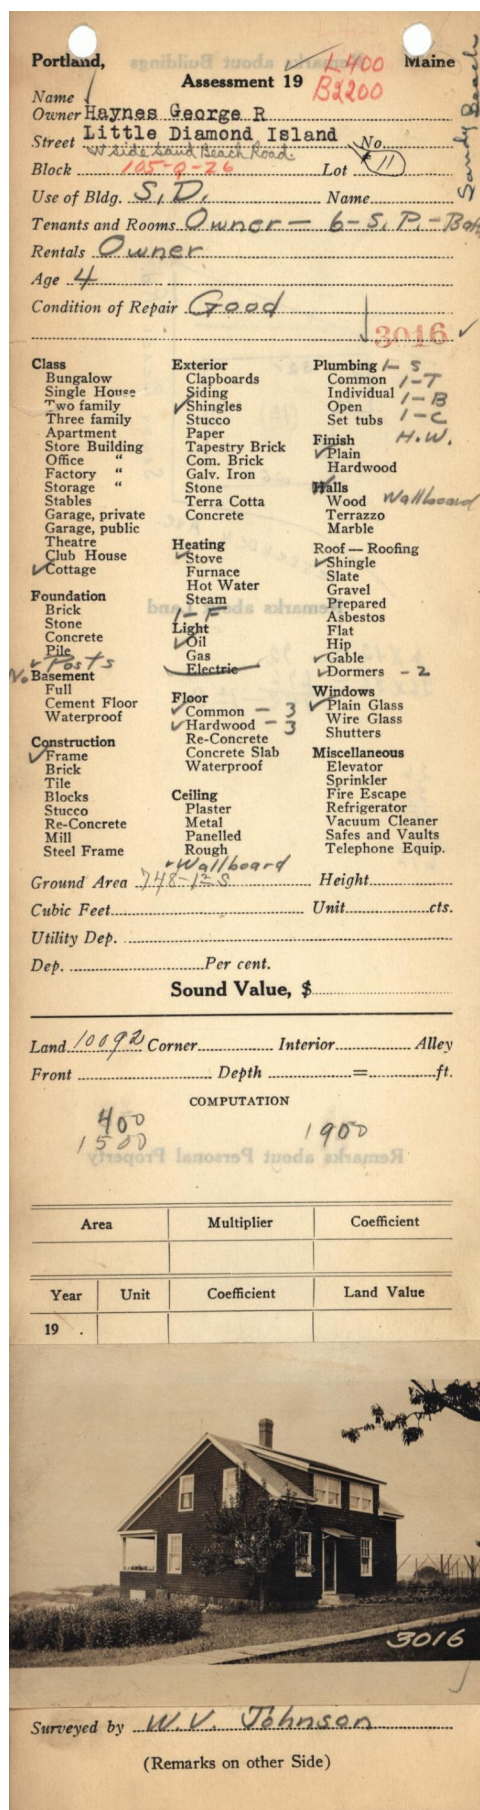 Portland, Maine
L400
Assessment 19
B2200
Sandy Beach
Name
Owner Haynes George R
Street Little Diamond Island No.
W side Sand Beach Road. 11
Block 105-Q-26 Lot
Use of Bldg. S.D. Name
Tenants and Rooms Owner — 6-S.P.-Bath
Rentals Owner
Age 4
Condition of Repair Good
3016
Class
Bungalow
Single House
Two family
Three family
Apartment
Store Building
Office "
Factory "
Storage "
Stables
Garage, private
Garage, public
Theatre
Club House
Cottage
Foundation
Brick
Stone
Concrete
Pile
Posts
No Basement
Full
Cement Floor
Waterproof
Construction
Frame
Brick
Tile
Blocks
Stucco
Re-Concrete
Mill
Steel Frame
Exterior
Clapboards
Siding
Shingles
Stucco
Paper
Tapestry Brick
Com. Brick
Galv. Iron
Stone
Terra Cotta
Concrete
Heating
Stove
Furnace
Hot Water
Steam
1-F
Light
Oil
Gas
Electric
Floor
Common - 3
Hardwood - 3
Re-Concrete
Concrete Slab
Waterproof
Ceiling
Plaster
Metal
Panelled
Rough
Wallboard
Plumbing 1-S
Common 1-T
Individual 1-B
Open 1-C
Set tubs
H.W.
Finish
Plain
Hardwood
Halls
Wood Wallboard
Terrazzo
Marble
Roof — Roofing
Shingle
Slate
Gravel
Prepared
Asbestos
Flat
Hip
Gable
Dormers - 2
Windows
Plain Glass
Wire Glass
Shutters
Miscellaneous
Elevator
Sprinkler
Fire Escape
Refrigerator
Vacuum Cleaner
Safes and Vaults
Telephone Equip.
Ground Area 748-1½ S Height
Cubic Feet Unit cts.
Utility Dep.
Dep. Per cent.
Sound Value, $
Land 10092 Corner Interior Alley
Front Depth = ft.
COMPUTATION
400
1500 1900
Area Multiplier Coefficient
Year Unit Coefficient Land Value
19 .
3016
Surveyed by W.V. Johnson
(Remarks on other Side)